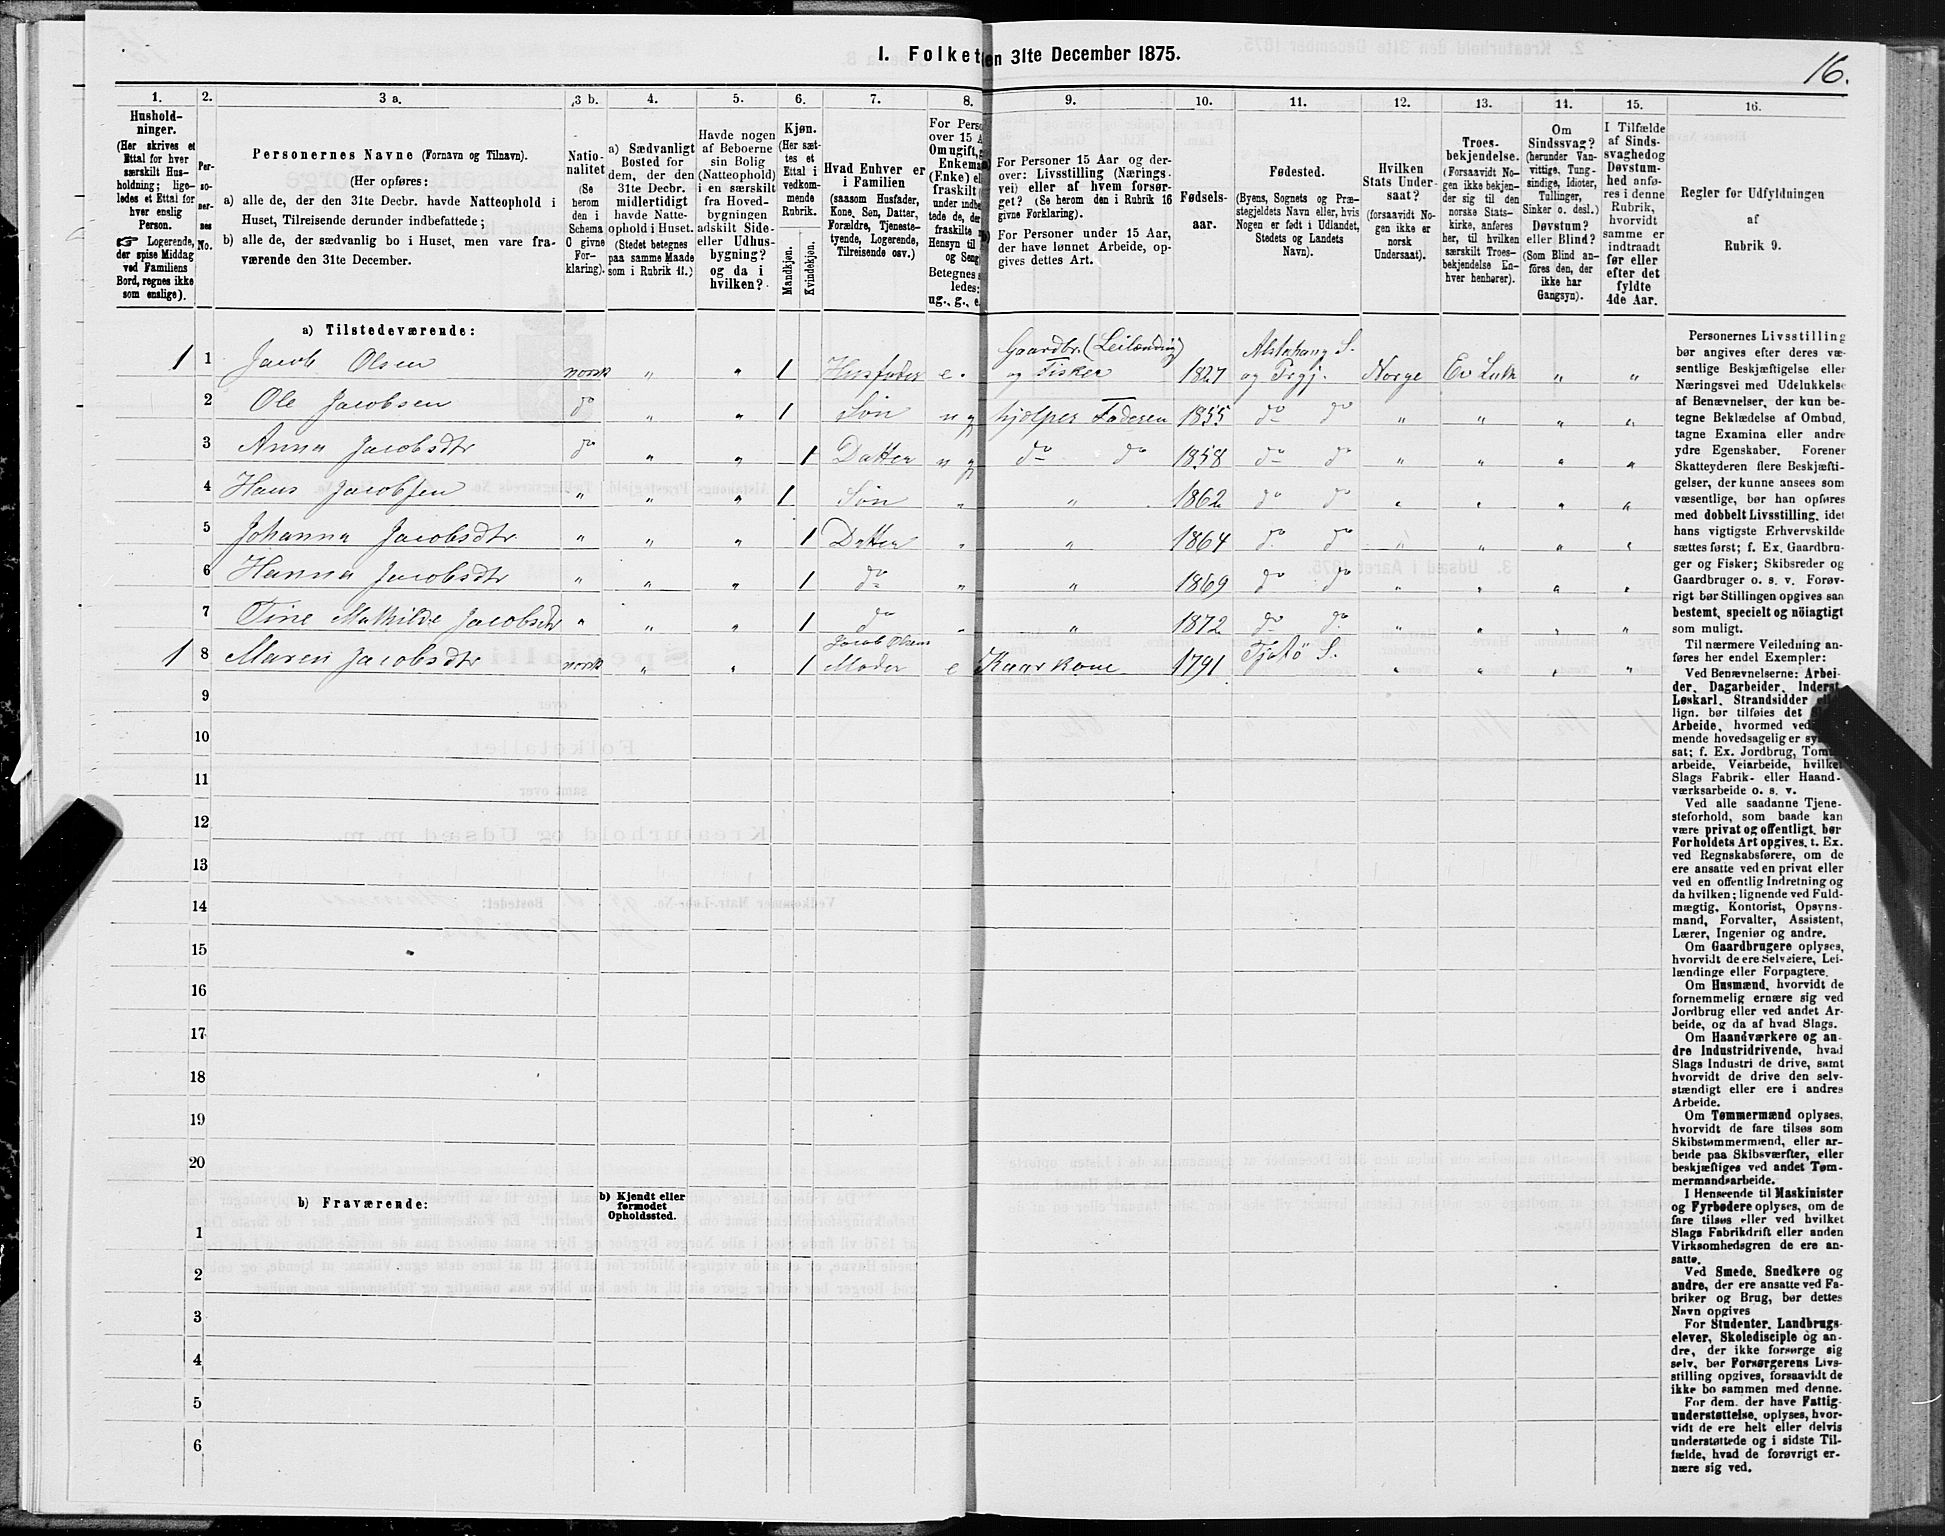 I. Folket en 31te December 1875.
16.
1. 2. 3 a. 3 b. 4. 5. 6. 7. 8. 9. 10. 11. 12. 13. 14. 15. 16.
Hushold-
ninger.
(Her skrives et
Ettal for hver
særskilt Hus-
holdning; lige-
ledes et Ettal for
hver enslig
Person.
☞ Logerende,
der spise Middag
ved Familiens
Bord, regnes ikke
som enslige).
Per-
so-
ner-
nes
No.
Personernes Navne (Fornavn og Tilnavn).
(Her opføres:
a) alle de, der den 31te Decbr. havde Natteophold i
Huset, Tilreisende derunder indbefattede;
b) alle de, der sædvanlig bo i Huset, men vare fra-
værende den 31te December.
Natio-
nalitet
(Se
herom
den i
Schema
C givne
For-
klaring).
a) Sædvanligt
Bosted for
dem, der den
31te Decbr.
midlertidigt
havde Natte-
ophold i Huset.
(Stedet betegnes
paa samme Maade
som i Rubrik 11.)
Havde nogen
af Beboerne
sin Bolig
(Natteophold)
i en særskilt
fra Hoved-
bygningen
adskilt Side-
eller Udhus-
bygning?
og da i
hvilken?
Kjøn.
(Her sæt-
tes et
Ettal i
vedkom-
mende
Rubrik.
Mandkjøn.
Kvindekjøn.
Hvad Enhver er
i Familien
(saasom Husfader,
Kone, Søn, Datter,
Forældre, Tjeneste-
tyende, Logerende,
Tilreisende osv.)
For Perso
over 15 A
Om ugift, g
Enkema
(Enke) el
fraskilt
under indbe
tede de, de
fraskilte
Hensyn til
og Seng
Betegnes s
ledes:
ug., g., e.
a) For Personer 15 Aar og der-
over: Livsstilling (Nærings-
vei) eller af hvem forsør-
get? (Se herom den i Rubrik 16
givne Forklaring).
b) For Personer under 15 Aar,
der have lønnet Arbeide, op-
gives dettes Art.
Fødsels-
aar.
Fødested.
(Byens, Sognets og Præ-
stegjeldets Navn eller, hvis
Nogen er født i Udlandet,
Stedets og Landets
Navn).
Hvilken
Stats Under-
saat?
(forsaavidt No-
gen ikke er
norsk
Undersaat).
Troes-
bekjendelse.
(Forsaavidt No-
gen ikke bekjen-
der sig til den
norske Stats-
kirke, anføres
her, til hvilken
særskilt Troes-
bekjendelse En-
hver henhører).
Om
Sindssvag?
(herunder Van-
vittige, Tung-
sindige, Idioter,
Tullinger,
Sinker o. desl.)
Døvstum?
eller Blind?
(Som Blind an-
føres den, der
ikke har
Gangsyn).
I Tilfælde
af Sinds-
svaghed og
Døvstum-
hed anfø-
res i denne
Rubrik,
hvorvidt
samme er
indtraadt
før eller
efter det
fyldte
4de Aar.
Regler for Udfyldningen
af
Rubrik 9.
a) Tilstedeværende:
1 1 Jacob Olsen norsk " " 1 Husfader e. Gaardbr. (Leilænding) og Fisker 1827 Alstahaug S. og Prgj. Norge Ev Luth " "
2 Ole Jacobsen do " " 1 Søn ug hjælper Faderen 1855 do do " " " "
3 Anna Jacobsdtr do " " 1 Datter ug do do 1858 do do " " " "
4 Hans Jacobsen " " " 1 Søn " " 1862 do do " " " "
5 Johanna Jacobsdtr " " " 1 Datter " " 1864 do do " " " "
6 Hanna Jacobsdtr " " " 1 do " " 1869 do do " " " "
7 Tine Mathilde Jacobsdtr " " " 1 do " " 1872 do do " " " "
1 8 Maren Jacobsdtr norsk " " 1 Jacob Olsens Moder e Kaarkone 1791 Tjøtø S. " " " "
9
10
11
12
13
14
15
16
17
18
19
20
b) Fraværende:
b) Kjendt eller
formodet
Opholdssted.
1
2
3
4
5
6
Personernes Livsstilling
bør angives efter deres væ-
sentlige Beskjæftigelse eller
Næringsvei med Udelukkelse
af Benævnelser, der kun be-
tegne Beklædelse af Ombud,
tagne Examina eller andre
ydre Egenskaber. Forener
Skatteyderen flere Beskjæfti-
gelser, der kunne ansees som
væsentlige, bør han opføres
med dobbelt Livsstilling, idet
hans vigtigste Erhvervskilde
sættes først; f. Ex. Gaardbru-
ger og Fisker; Skibsreder og
Gaardbruger o. s. v. Forøv-
rigt bør Stillingen opgives saa
bestemt, specielt og nöiagtigt
som muligt.
Til nærmere Veiledning an-
føres her endel Exempler:
Ved Benævnelserne: Arbei-
der, Dagarbeider, Inderst,
Løskarl, Strandsidder
lign. bør tilføies det
Arbeide, hvormed ved
mende hovedsagelig er
sat; f. Ex. Jordbrug,
arbeide, Veiarbeide, hvilket
Slags Fabrik- eller Haand-
værksarbeide o. s. v.
Ved alle saadanne Tjene-
steforhold, som baade kan
være privat og offentligt, bør
Forholdets Art opgives, t. Ex.
ved Regnskabsførere, om de
ere ansatte ved en privat eller
ved en offentlig Indretning og
da hvilken; lignende ved Fuld-
mægtig, Kontorist, Opsyns-
mand, Forvalter, Assistent,
Lærer, Ingeniør og andre.
Om Gaardbrugere oplyses,
hvorvidt de ere Selveiere, Lei-
lændinge eller Forpagtere.
Om Husmænd, hvorvidt de
fornemmelig ernære sig ved
Jordbrug eller ved andet Ar-
beide, og da af hvad Slags.
Om Haandværkere og an-
dre Industridrivende, hvad
Slags Industri de drive, samt
hvorvidt de drive den selv-
stændigt eller ere i andres
Arbeide.
Om Tømmermænd oplyses,
hvorvidt de fare tilsøs som
Skibstømmermænd, eller ar-
beide paa Skibsværfter, eller
beskjæftiges ved andet Tøm-
mermandsarbeide.
I Henseende til Maskinister
og Fyrbødere oplyses, om de
fare tilsøs eller ved hvilket
Slags Fabrikdrift eller anden
Virksomhedsgren de ere an-
satte.
Ved Smede, Snedkere og
andre, der ere ansatte ved Fa-
briker og Brug, bør dettes
Navn opgives
For Studenter, Landbrugs-
elever, Skoledisciple og an-
dre, der ikke forsørge sig
selv, bør Forsørgerens Livs-
stilling opgives, forsaavidt de
ikke bo sammen med denne.
For dem, der have Fattig-
understøttelse, oplyses, hvor-
vidt de ere helt eller delvis
understøttede og i sidste Til-
fælde, hvad de forøvrigt er-
nære sig ved.